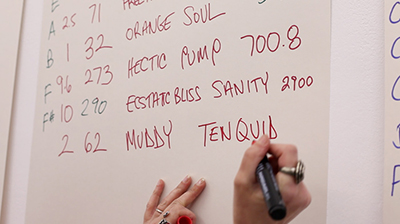 E 25 71
A 1 32 ORANGE SOUL
B 96 273 HECTIC PUMP 700.8
F 10 290 ECSTATIC BLISS SANITY 2900
F# 2 62 MUDDY TENQUID